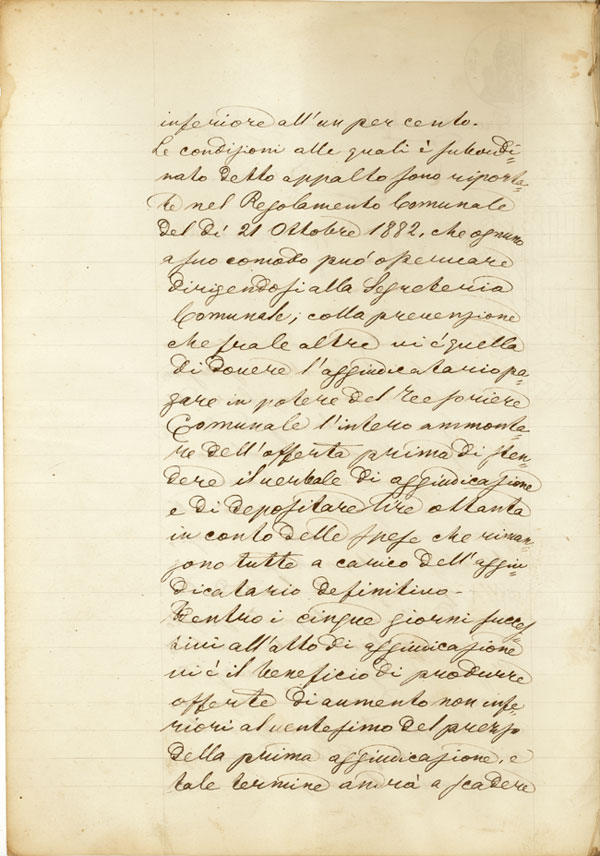 inferiore all'un per cento.
Le condizioni alle quali è subordi-
nato detto appalto sono riporta-
te nel Regolamento Comunale
del dì 21 Ottobre 1882, che ognuno
a suo comodo può osservare
dirigendosi alla Segreteria
Comunale; colla prevenzione
che fra le altre vi è quella
di dovere l'aggiudicatario pa-
gare in potere del Tesoriere
Comunale l'intero ammonta-
re dell'offerta prima di sten-
dere il verbale di aggiudicazione
e di depositare lire ottanta
in conto delle spese che riman-
gono tutte a carico dell'aggiu-
dicatario definitivo.
Entro i cinque giorni succes-
sivi all'atto di aggiudicazione
vi è il beneficio di produrre
offerte di aumento non infe-
riori al ventesimo del prezzo
della prima aggiudicazione, e
tale termine andrà a scadere